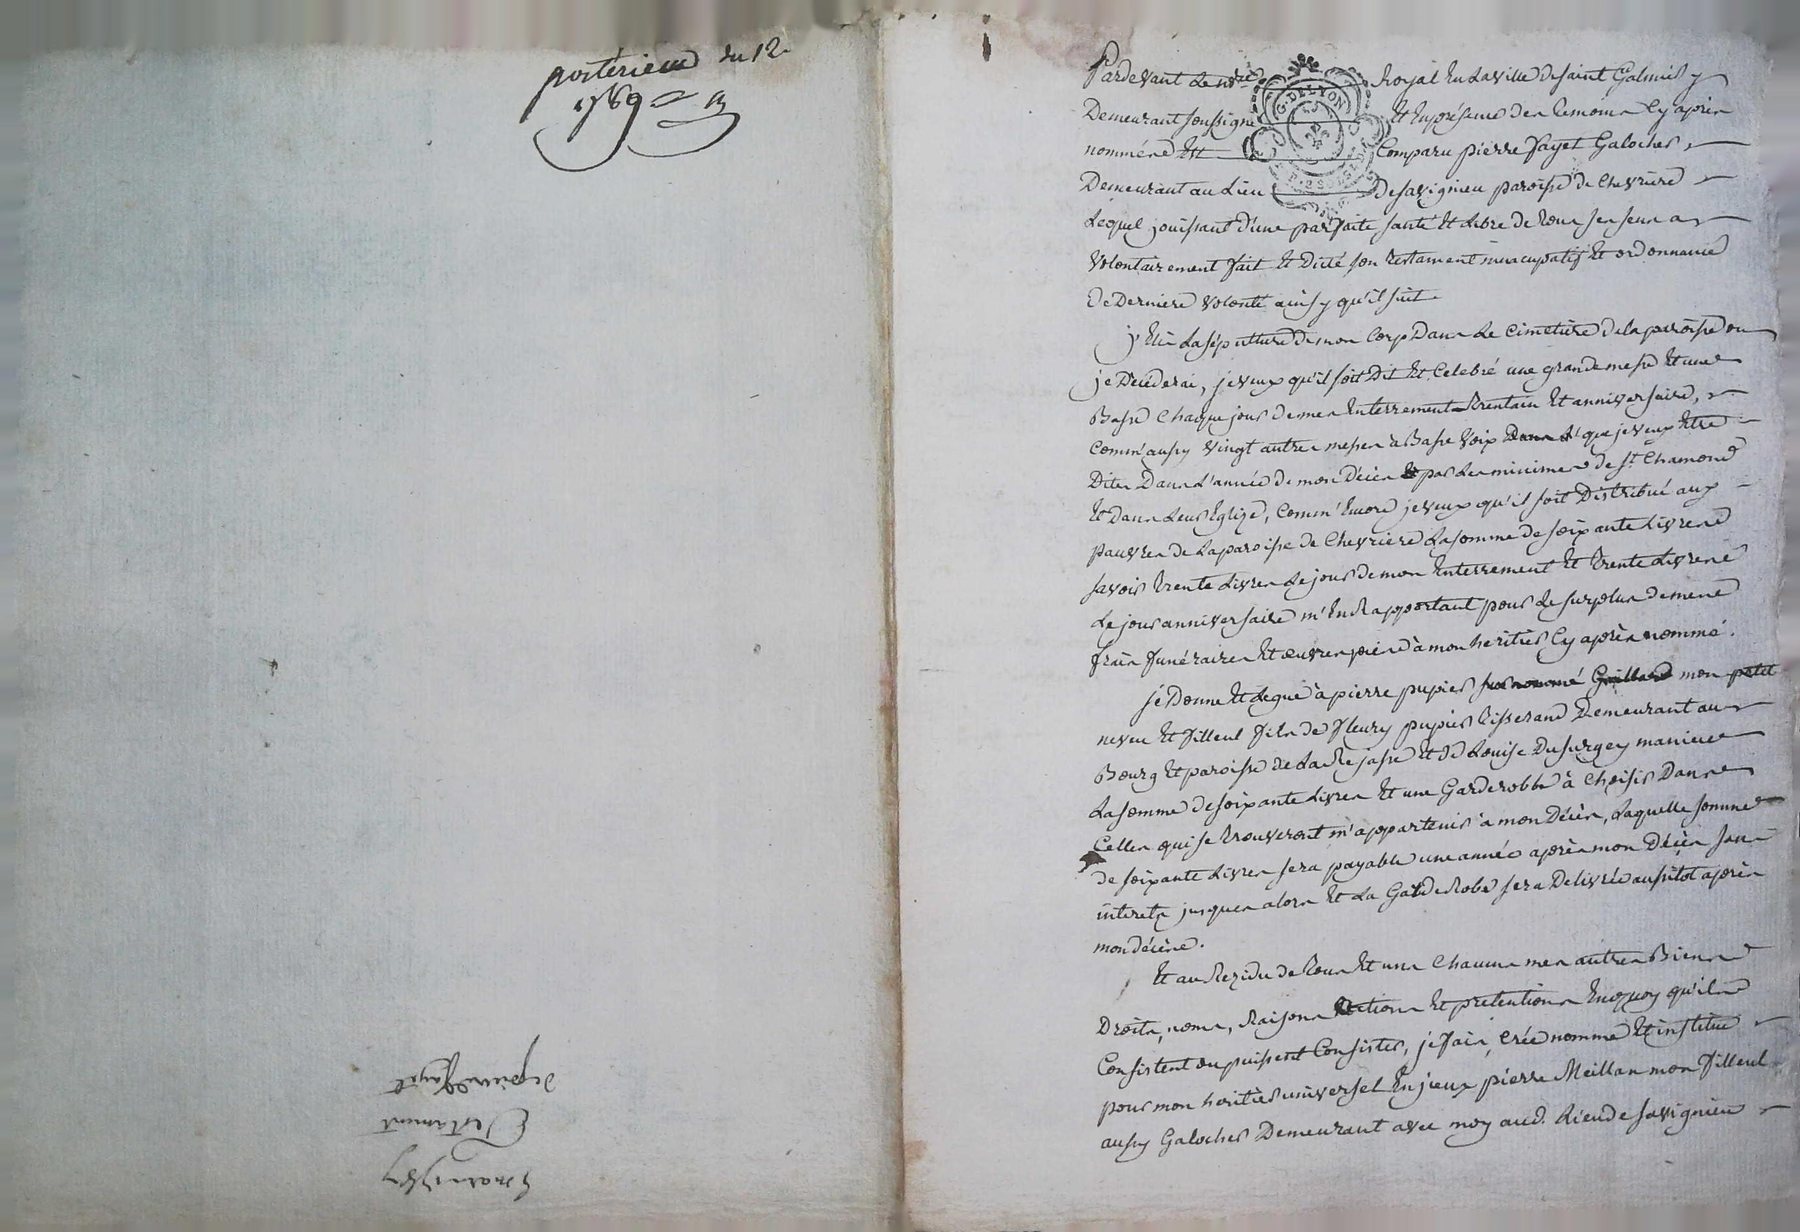 postérieur du 12
1789
Pardevant Le nore Royal En La ville de saint Galmier y
Demeurant soussigné Et En présence des temoins Cy après
nommés Est Comparu pierre fayet Galocher
Demeurant au Lieu de savignieu paroisse de Chevrieres
Lequel jouissant d'une parfaite santé Et Libre de tous ses sens a
volontairement fait Et Dicté son testament nuncupatif Et ordonnance
de Derniere volonté ainsy qu'il suit
j'Elis La sépulture de mon Corp Dans Le Cimetiere de la paroisse ou
je Décéderai, je veux qu'il soit Dit Et Celebré une grande messe Et une
Basse Chaque jour de mes Enterrement trentain Et anniversaire,
Comm'aussy vingt autres messes à Basse voix que je veux Etre
Dites Dans L'année de mon Décès par Les minimes de St Chamond
Et Dans Leur Eglize, Comm'Encore je veux qu'il soit Distribué aux
pauvres de La paroisse de Chevrieres La somme de soixante Livres
savoir trente Livres Le jour de mon Enterrement Et trente Livres
Le jour anniversaire m'En Rapportant pour Le surplus de mes
frais funéraires Et œuvres pies à mon heritier Cy après nommé.
je Donne Et Legue à pierre pupier surnommé Gaillard mon petit
neveu Et filleul fils de fleury pupier tisserand Demeurant au
Bourg Et paroisse de La Rejasse Et de Louise Dusurgey
La somme de soixante Livres Et une Garderobbe à Choisir Dans
Celles qui se trouveront m'appartenir à mon Décès, Laquelle somme
de soixante Livres sera payable une année après mon Décès sans
interets jusques alors Et La Garderobe sera Delivrée aussitôt après
mon décès.
Et au Rezidu de tous Et uns Chacuns mes autres Biens
Droits, noms, Raisons Actions Et pretentions En quoy qu'ils
Consistent ou puissent Consister, je fais, Crée nomme Et institue
pour mon heritier universel pierre Meillan mon filleul
aussy Galocher Demeurant avec moy aud. Lieu de savignieu
Testament
de pierre fayet